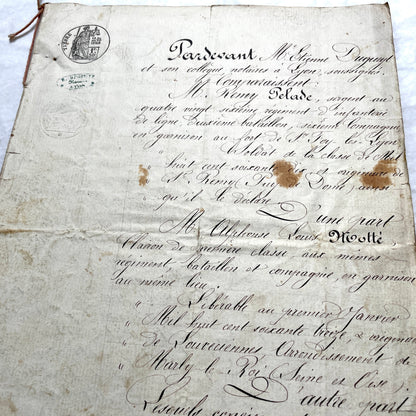 TIMBRE
Pardevant Mᵉ Etienne
et son collègue notaires à Lyon, soussignés.
Comparaissent:
M. Rémy Pelade, sergent au
quatre vingt sixième régiment d'infanterie
de ligne deuxième bataillon, sixième Compagnie
en garnison au fort de Sᵗ Foy les Lyon
Soldat de la classe de Mil
huit cent soixante dix et originaire de
Sᵗ Rémy Puy de Dôme, ainsi
qu'il le déclare
D'une part
M. Alphonse Louis Motté
Clairon de première classe aux mêmes
régiment, bataillon et compagnie, en garnison
au même lieu.
Libérable au premier Janvier
Mil huit cent soixante treize & originaire
de Louveciennes Arrondissement de
Marly le Roi Seine et Oise;
D'autre part
Lesquels